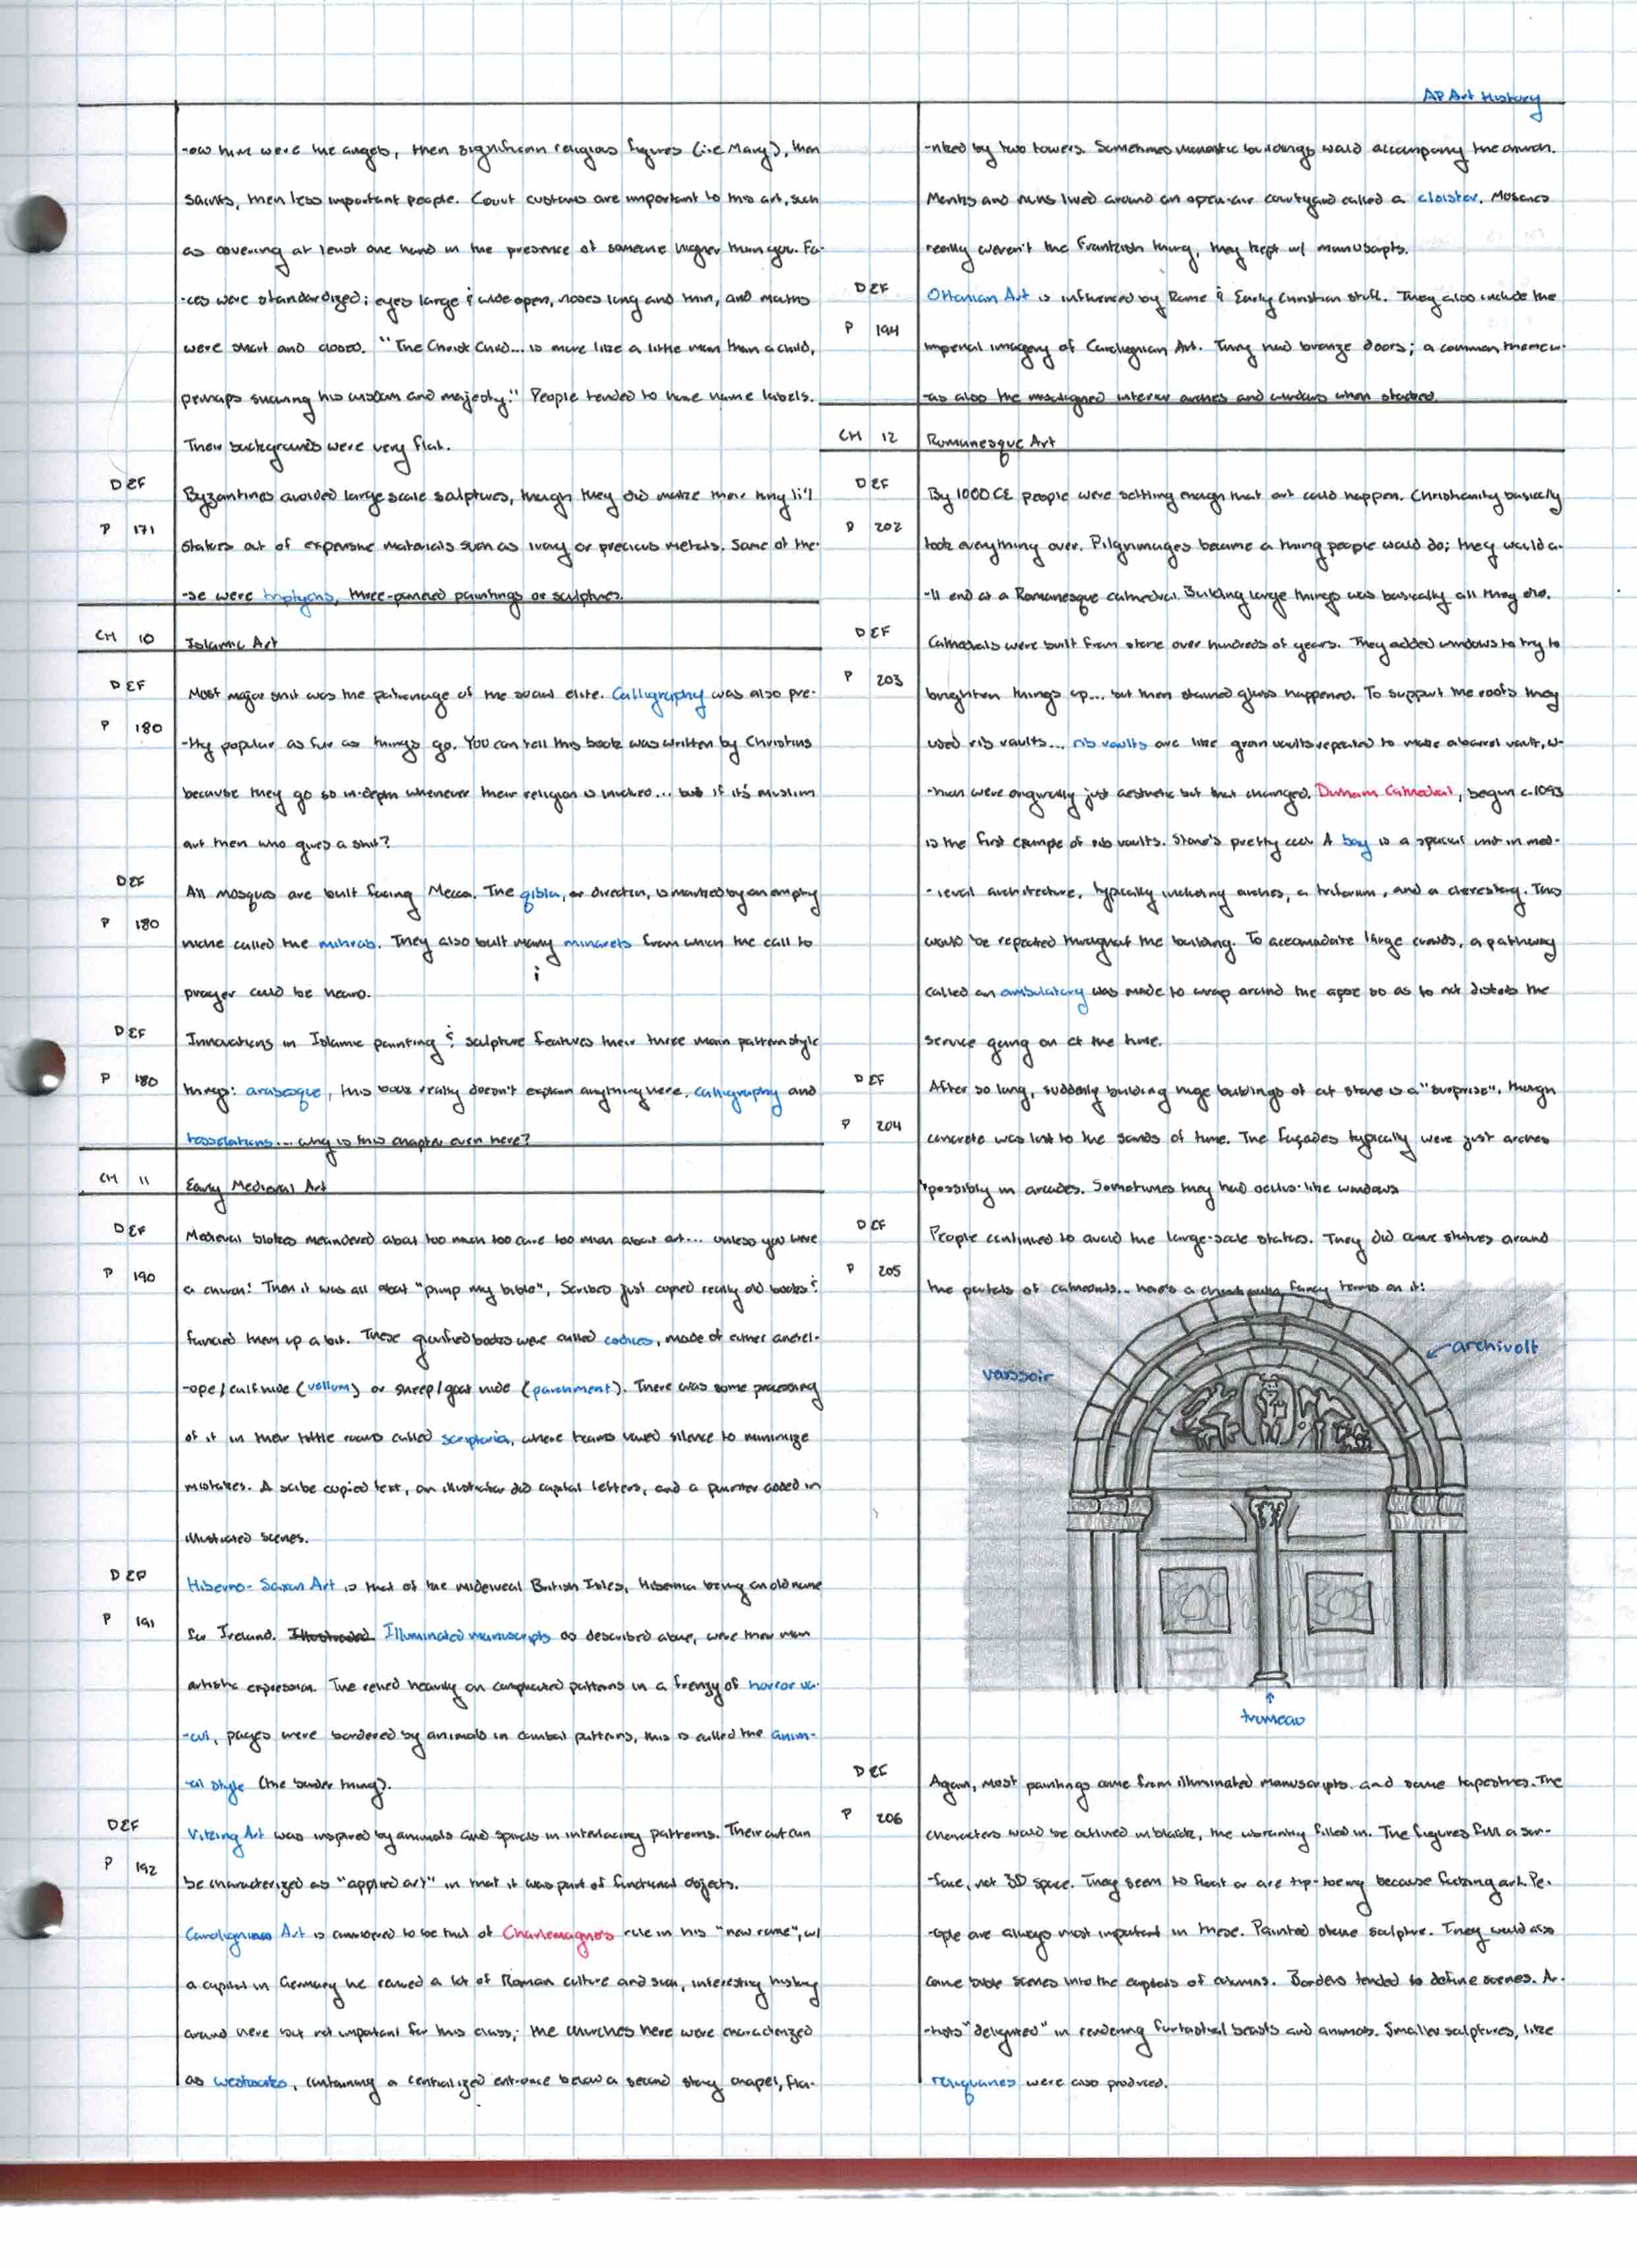 AP Art History
-ow him were the angels, then significan religious figures (i.e Mary), then
saints, then less important people. Court customs are important to this art, such
as covering at least one hand in the presence of someone higher than you. Fa-
-ces were standardized; eyes large & wide open, noses long and thin, and mouths
were short and closed. "The Christ Child... is more like a little man than a child,
perhaps showing his wisdom and majesty." People tended to have name labels.
Their backgrounds were very flat.
DEF
P 171
Byzantines avoided large scale sculptures, though they did make these tiny li'l
statues out of expensive materials such as ivory or precious metals. Some of the-
-se were triptychs, three-paneled paintings or sculptures.
CH 10 Islamic Art
DEF
P 180
Most major shit was the patronage of the social elite. Calligraphy was also pre-
-tty popular as far as things go. You can tell this book was written by Christins
because they go so in-depth whenever their religion is involved... but if it's muslim
art then who gives a shit?
DEF
P 180
All mosques are built facing Mecca. The qibla, or direction, is marked by an empty
niche called the mihrab. They also built many minarets from which the call to
prayer could be heard.
DEF
P 180
Innovations in Islamic painting & sculpture features their three main pattern style
things: arabesque, this book really doesn't explain anything here, calligraphy and
tesselations... why is this chapter even here?
CH 11 Early Medieval Art
DEF
P 190
Medieval blokes meandered about too much too care too much about art... unless you were
a church! Then it was all about "pimp my bible", Scribes just copied really old books &
fancied them up a bit. These glorified books were called codices, made of either antel-
-ope/calf hide (vellum) or sheep/goat hide (parchment). There was some processing
of it in their little rooms called scriptoria, where teams vowed silence to minimize
mistakes. A scibe copied text, an illustrator did capital letters, and a painter added in
illustrated scenes.
DEF
P 191
Hiberno-Saxon Art is that of the mideweal British Isles, Hibernia being an old name
for Ireland. Illustrated Illuminated manuscripts as described above, were their main
artistic expression. The relied heavily on complicated patterns in a frenzy of horror va-
-cui, pages were bordered by animals in combat patterns, this is called the anim-
-al style (the border thing).
DEF
P 192
Viking Art was inspired by animals and spirals in interlacing patterns. Their art can
be characterized as "applied art" in that it was part of functional objects.
Carolignian Art is considered to be that of Charlemagne's rule in his "new rome", w/
a capital in Germany he revived a lot of Roman culture and such, interesting history
around here but not important for this class; the churches here were characterized
as westworks, containing a centralized entrance below a second story chapel, fla-
-nked by two towers. Sometimes monastic buildings would accompany the church.
Monks and nuns lived around an open-air courtyard called a cloister. Mosaics
really weren't the Frankish thing, they kept w/ manuscripts.
DEF
P 194
Ottonian Art is influenced by Rome & Early Christian stuff. They also include the
imperial imagery of Carolignian Art. They had bronze doors; a common theme w-
-as also the misaligned interior arches and windows when stacked.
CH 12 Romanesque Art
DEF
P 202
By 1000 CE people were settling enough that art could happen. Christianity basically
took everything over. Pilgrimages became a thing people would do; they would a-
-ll end at a Romanesque cathedral. Building large things was basically all they did.
DEF
P 203
Cathedrals were built from stone over hundreds of years. They added windows to try to
brighten things up... but then stained glass happened. To support the roofs they
used rib vaults... rib vaults are like groin vaults repeated to make a barrel vault, w-
-hich were originally just aesthetic but that changed. Durham Cathedral, begun c.1093
is the first example of rib vaults. Stone's pretty cool. A bay is a spacial unit in med-
-ieval architecture, typically including arches, a triforium, and a clerestory. This
would be repeated throughout the building. To accomodate large crowds, a pathway
called an ambulatory was made to wrap around the apse so as to not disturb the
service going on at the time.
DEF
P 204
After so long, suddenly building huge buildings of cut stone is a "surprise", though
concrete was lost to the sands of time. The façades typically were just arches
possibly in arcades. Sometimes they had oculus-like windows
DEF
P 205
People continued to avoid the large-scale statues. They did carve statues around
the portals of cathedrals... here's a fancy terms on it:
voussoir
archivolt
trumeau
DEF
P 206
Again, most paintings came from illuminated manuscripts. and some tapestries. The
characters would be outlined in black, the vibrantly filled in. The figures fill a sur-
-face, not 3D space. They seem to float or are tip-toeing because fucking art. Pe-
-ople are always most important in these. Painted stone sculptre. They would also
carve bible scenes into the capitals of columns. Borders tended to define scenes. Ar-
-tists "delighted" in rendering fantastical beasts and animals. Smaller sculptures, like
reliquaries were also produced.